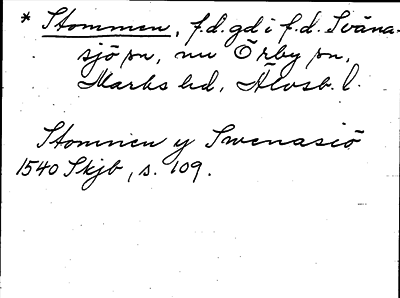 * Stommen, f.d. gd i f.d. Sväna-
sjö sn, nu Örby sn,
Marks hd, Älvsb. l.
Stommen y Swenasiö
1540 Skjb, s. 109.